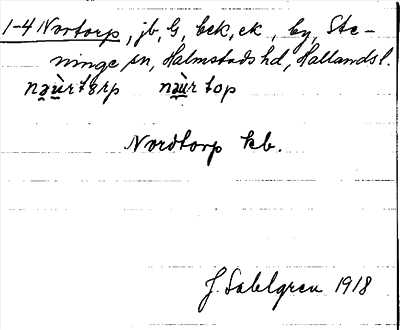 1-4 Nortorp, jb, G, bek, ek, by, Ste-
ninge sn, Halmstads hd, Hallands l.
nəùrtərp nəùrtop
Nordtorp kb.
J. Sahlgren 1918